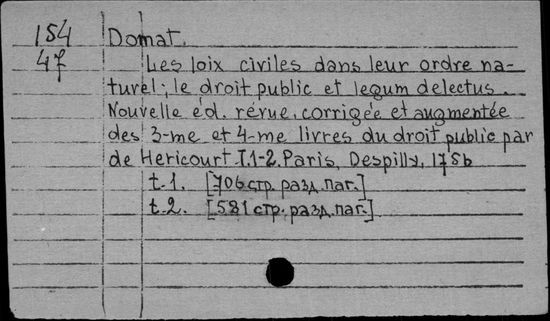 154 Domat.
47 Les loix civiles dans leur ordre na-
turel; le droit public et legum delectus.
Nouvelle éd. revue, corrigée et augmentée
des 3-me et 4-me livres du droit public par
de Hericourt T.1-2. Paris, Despilly,
t.1. [706 стр. разд. паг.]
t.2. [581 стр. разд. паг.]